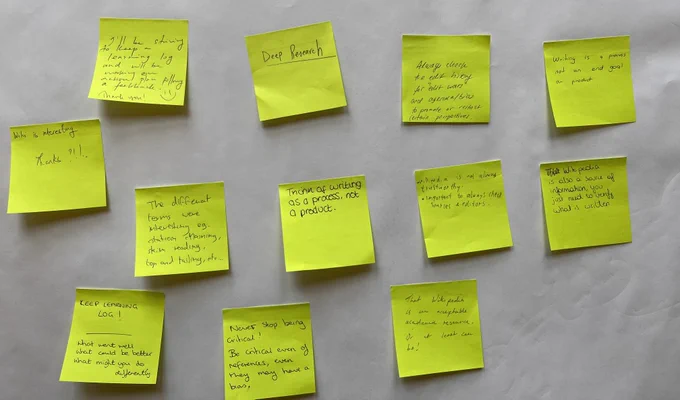 I'll be striving
to keep a
learning log
and will be
making an
action plan
Thank you!
Deep Research
Always check
the edit history
for edit wars
and
to promote or restrict
certain perspectives
Writing is a process
not an end goal
or product
is interesting
Thanks !!!
The different
terms were
interesting eg.
skim reading,
top and tailing, etc...
Think of writing
as a process, not
a product.
is not always
trustworthy
important to always check
sources & editors
Wikipedia
is also a source of
information, you
just need to verify
what is written
KEEP LEARNING
LOG !
What went well
What could be better
What might you do
differently
Never stop being
critical!
Be critical even of
references, even
they may have a
bias,
That Wikipedia
is an acceptable
academic resource,
or at least can
be!